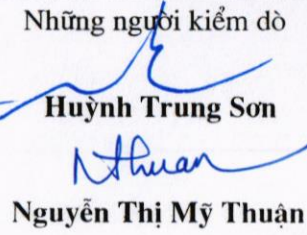 Những người kiểm dò
Huỳnh Trung Sơn
NThuan
Nguyễn Thị Mỹ Thuận